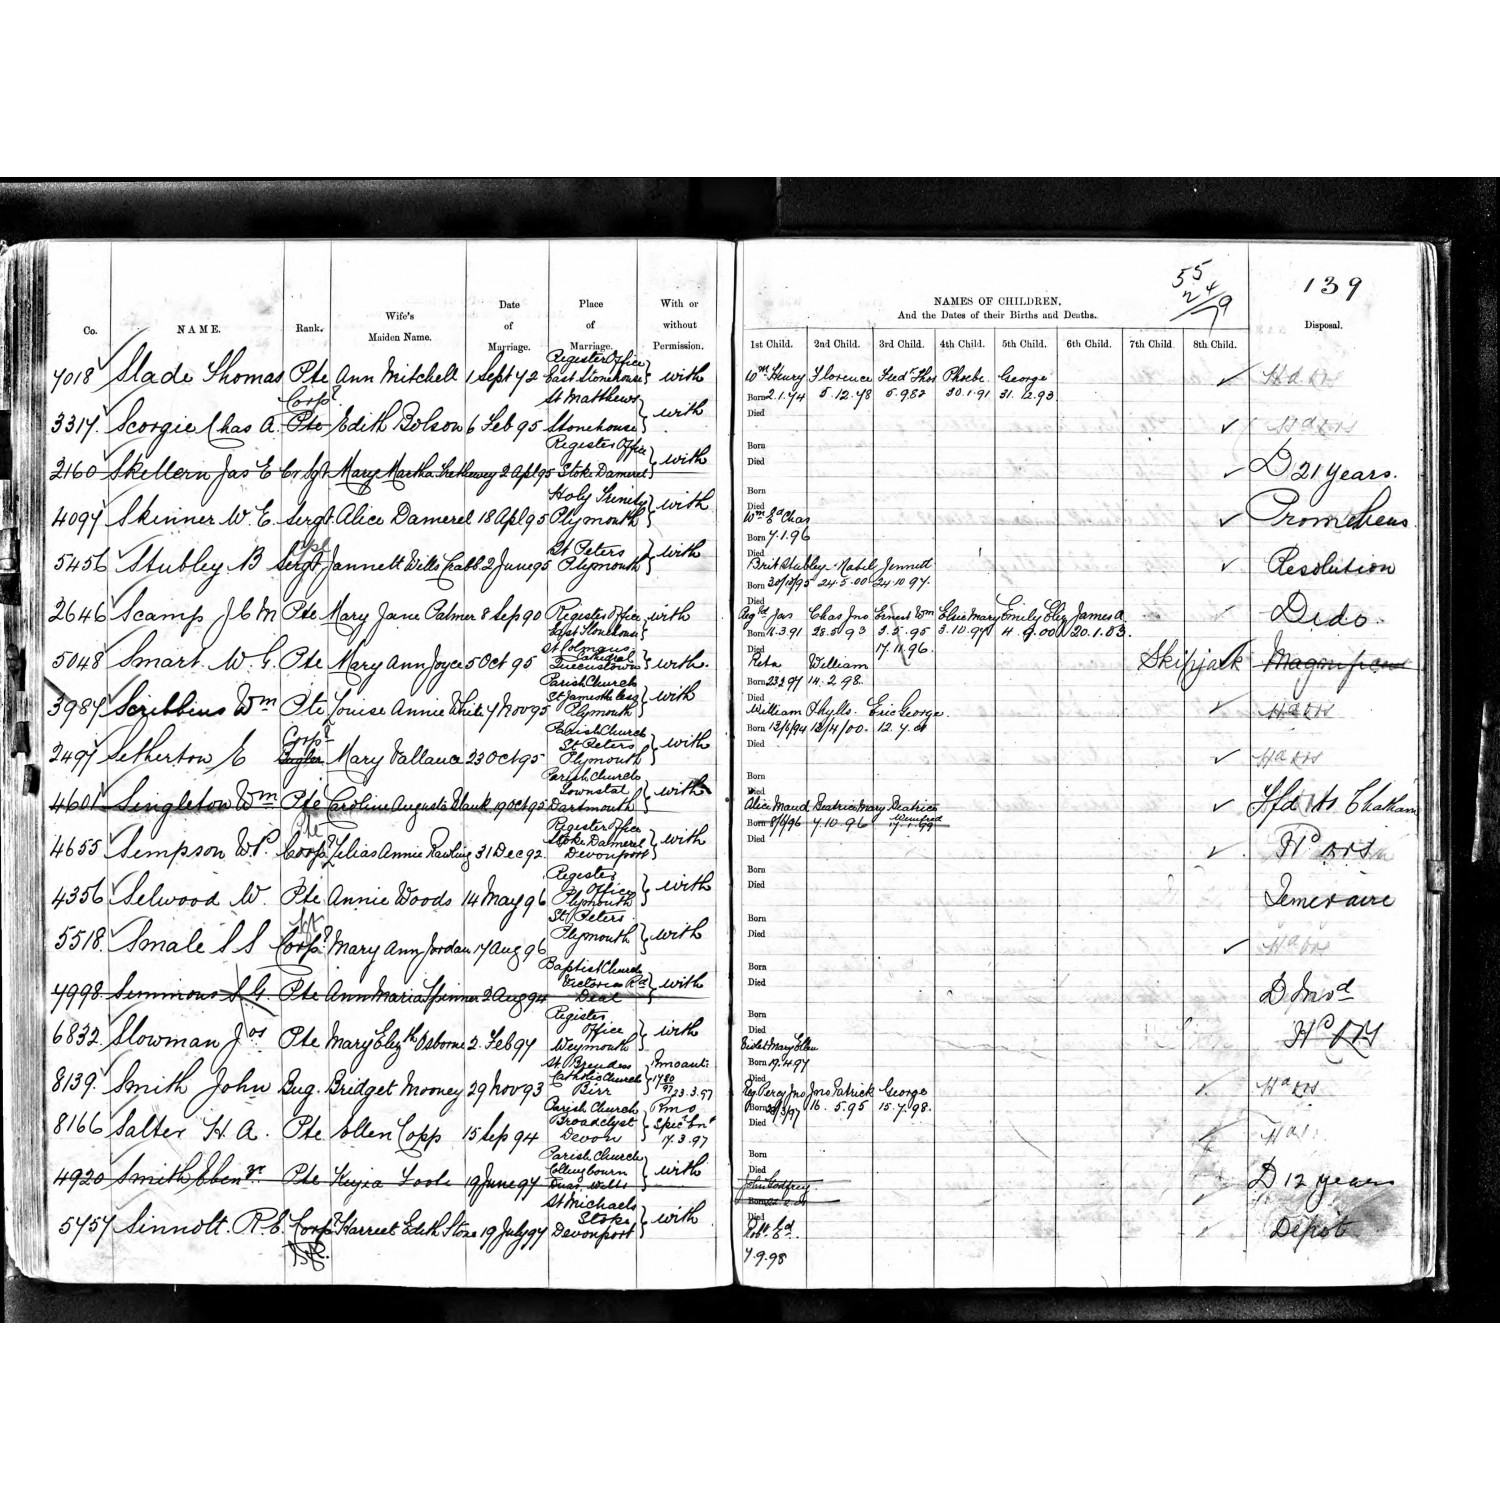 Co.
NAME.
Rank.
Wife's Maiden Name.
Date of Marriage.
Place of Marriage.
With or without Permission.
55
24/79
139
NAMES OF CHILDREN,
And the Dates of their Births and Deaths.
Disposal.
1st Child. 2nd Child. 3rd Child. 4th Child. 5th Child. 6th Child. 7th Child 8th Child.
7018 Slade Thomas Pte Ann Mitchell 1 Sept 72 Register Office East Stonehouse with
Wm Henry Florence Fredk Thos Phoebe George
Born 2.1.74 5.12.78 5.9.82 30.1.91 31.12.93
Died
3317 Scorgie Chas A. Corpl Pte Edith Bolson 6 Feb 95 St Matthews Stonehouse with
Born
Died
2160 Skellern Jas E Cr Sgt Mary Martha Trethewey 2 Apl 95 Register Office Stoke Damerel with D 21 Years.
Born
Died
4097 Skinner W. E. Sergt Alice Damerel 18 Apl 95 Holy Trinity Plymouth with Prometheus
Wm Ed Chas
Born 7.1.96
Died
5456 Stubley B Sergt Jannett Wills Crabb 2 June 95 St Peters Plymouth with Resolution
Brit Stubley Mabel Jennett
Born 30/12/95 24.5.00 24.10.97.
Died
2646 Scamp J C M Pte Mary Jane Palmer 8 Sep 90 Register Office East Stonehouse with Dido
Regd Jas Chas Jno Ernest Wm Elsie Mary Emily Eliz James A
Born 16.3.91 28.5.93 3.5.95 3.10.97 4.9.00 20.1.03.
Died 17.11.96.
5048 Smart W. G. Pte Mary Ann Joyce 5 Oct 95 St Colmans Cathedral Queenstown with. Skipjack Magnificent
Reta William
Born 23 2 97 14.2.98.
Died
3987 Scribbins Wm Pte Louise Annie White 7 Nov 95 Parish Church St James the less Plymouth with Hdqrs
William Phyllis. Eric George.
Born 13/6/94 13/4/00. 12.7.01
Died
2497 Setherton E Corpl Bugler Mary Vallance 23 Oct 95 Parish Church St Peters Plymouth with Hdqrs
Born
Died
4601 Singleton Wm Pte Caroline Augusta Blank 19 Oct 95 Parish Church Townstal Dartmouth with Tfd to Chatham
Alice Maud Beatrice Mary Beatrice Winifred
Born 8/6/96 7.10.96 17.1.99
Died
4655 Simpson W. P. Corpl Zelias Annie Rawling 31 Dec 92 Register Office Stoke Damerel Devonport with
Born
Died
4356 Selwood W. Pte Annie Woods 14 May 96 Register Office Plymouth with Temeraire
Born
Died
5518. Smale S S Corpl Mary Ann Jordan 17 Aug 96 St Peters. Plymouth with
Born
Died
4998 Simmons S G. Pte Ann Maria Spinner 2 Aug 94 Baptist Church Victoria Rd Deal with D Invd
Born
Died
6832 Slowman Jos Pte Mary Elizth Osborne 2. Feb 97 Register Office Weymouth with
Violet Mary Ellen
Born 19.4.97
Died
8139. Smith John Bug. Bridget Mooney 29 Nov 93 St. Brendans Catholic Church Birr 23.3.97
Reg Percy Jno Jno Patrick George
Born 16.5.95 15.7.98.
Died
8166 Salter H. A. Pte Ellen Copp 15 Sep 94 Parish Church Broadclyst Devon 17.3.97
Born
Died
4920 Smith Ebenzr Pte Kezia Toole 19 June 97 Parish Church Collingbourn Ducis Wilts with D 12 years
John Godfrey
Born
Died
5757 Sinnott. R. E. Corpl Harriet Edith Stone 19 July 97 St Michaels Stoke Devonport with Depot
Robt Ed.
7.9.98